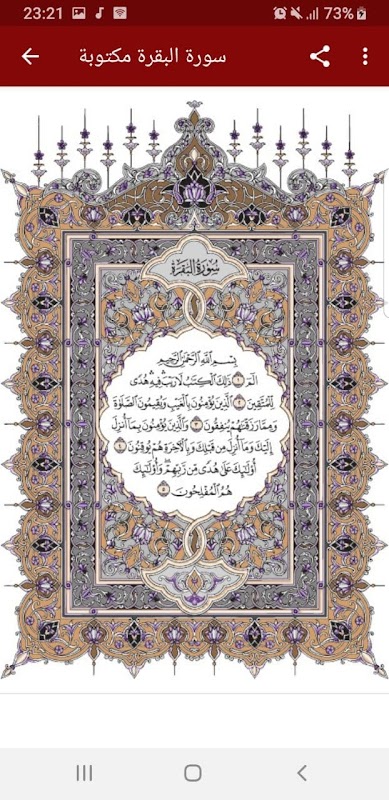 23:21
73%
سورة البقرة مكتوبة
سُورَةُ البَقَرَةِ
بِسْمِ اللَّهِ الرَّحْمَٰنِ الرَّحِيمِ
الٓمٓ ١ ذَٰلِكَ الْكِتَٰبُ لَا رَيْبَ فِيهِ هُدًى
لِّلْمُتَّقِينَ ٢ الَّذِينَ يُؤْمِنُونَ بِالْغَيْبِ وَيُقِيمُونَ الصَّلَوٰةَ
وَمِمَّا رَزَقْنَٰهُمْ يُنفِقُونَ ٣ وَالَّذِينَ يُؤْمِنُونَ بِمَا أُنزِلَ
إِلَيْكَ وَمَا أُنزِلَ مِن قَبْلِكَ وَبِالْآخِرَةِ هُمْ يُوقِنُونَ ٤
أُولَٰئِكَ عَلَىٰ هُدًى مِّن رَّبِّهِمْ وَأُولَٰئِكَ
هُمُ الْمُفْلِحُونَ ٥